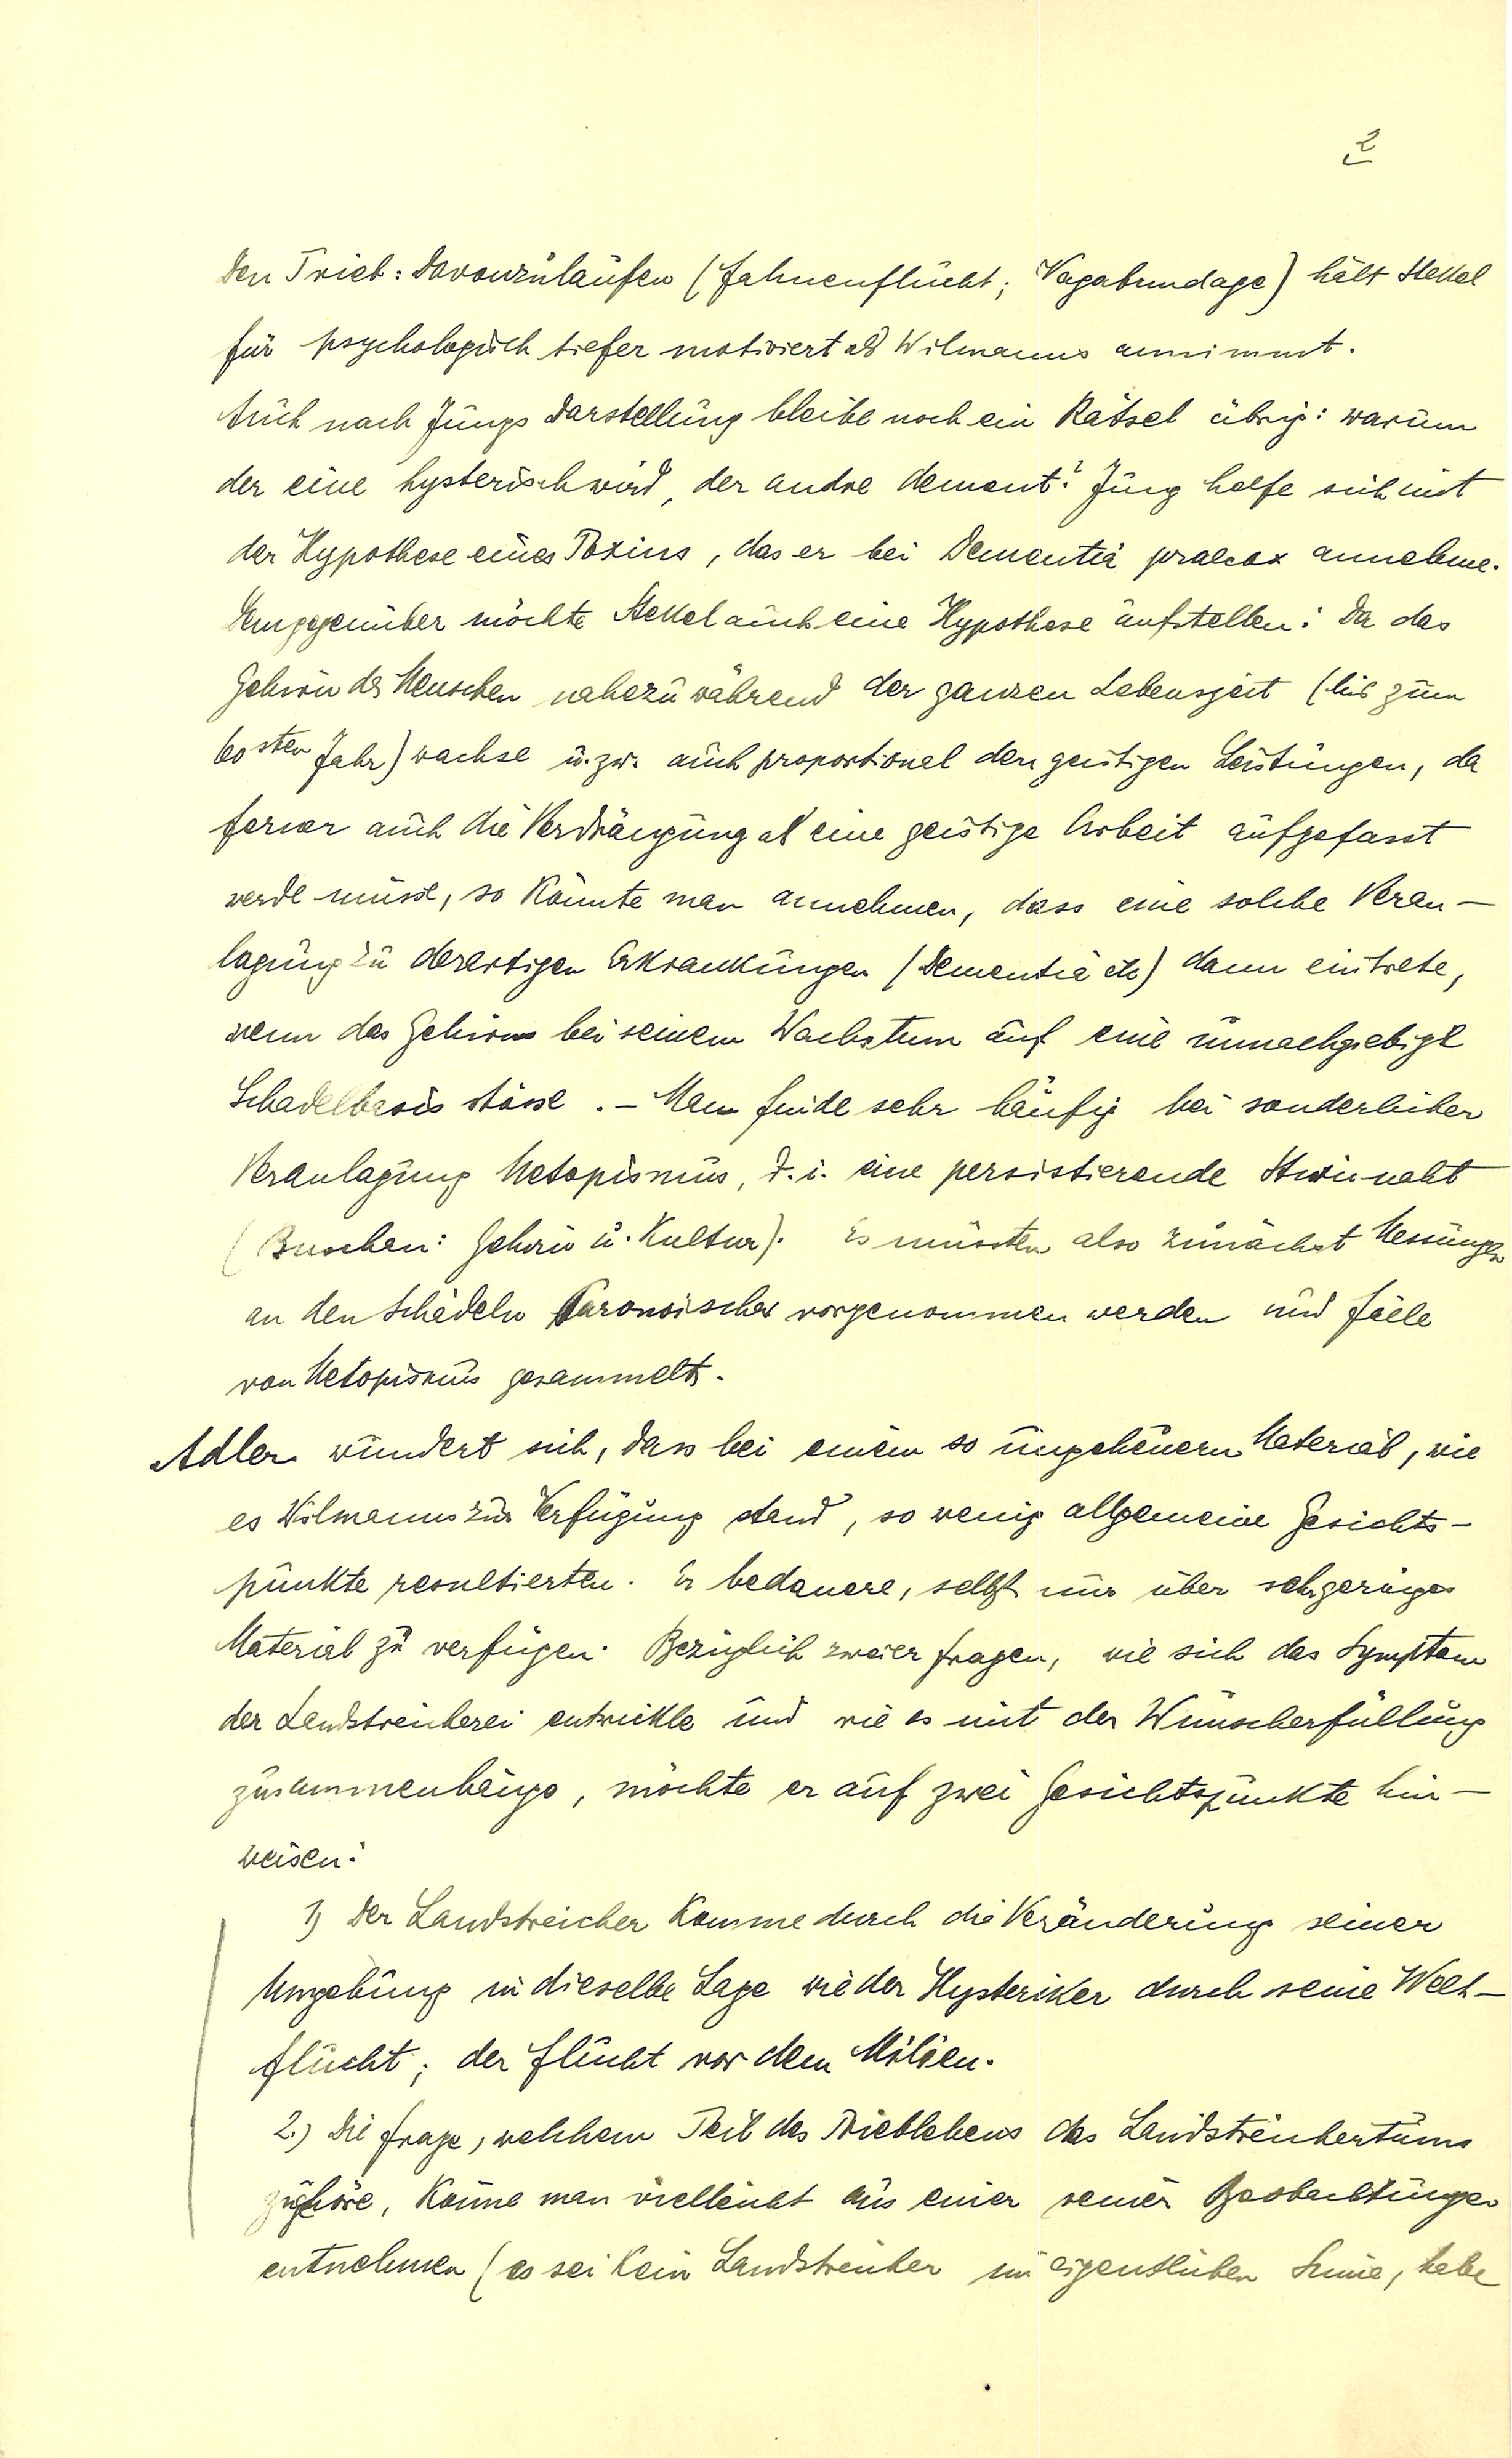 2
Den Trieb: Davonzulaufen (Fahnenflucht; Vagabundage) hält Stekel
für psychologisch tiefer motiviert als Wilmanns annimmt.
Auch nach Jungs Darstellung bleibe noch ein Rätsel übrig: warum
der eine hysterisch wird, der andre dement? Jung helfe sich mit
der Hypothese eines Toxins, das er bei Dementia praecox annehme.
Demgegenüber möchte Stekel auch eine Hypothese aufstellen: Da das
Gehirn des Menschen nahezu während der ganzen Lebenszeit (bis zum
60sten Jahr) wachse u. zw. auch proportional den geistigen Leistungen, da
ferner auch die Verdrängung als eine geistige Arbeit aufgefasst
werde müsse, so könnte man annehmen, dass eine solche Veran-
lagung zu derartigen Erkrankungen (Dementia etc) dann eintrete,
wenn das Gehirn bei seinem Wachstum auf eine unnachgiebige
Schädelbasis stosse. – Man finde sehr häufig bei sonderlicher
Veranlagung Metopismus, d.i. eine persistierende Stirnnaht
(Buschan: Gehirn u. Kultur). Es müssten also zunächst Messungen
an den Schädeln Paranoischer vorgenommen werden und Fälle
von Metopismus gesammelt.
Adler wundert sich, dass bei einem so ungeheuern Material, wie
es Wilmanns zur Verfügung stand, so wenig allgemeine Gesichts-
punkte resultierten. Er bedauere, selbst nur über sehr geringes
Material zu verfügen. Bezüglich zweier Fragen, wie sich das Symptom
der Landstreicherei entwickle und wie es mit der Wunscherfüllung
zusammenhänge, möchte er auf zwei Gesichtspunkte hin-
weisen:
1) Der Landstreicher komme durch die Veränderung seiner
Umgebung in dieselbe Lage wie der Hysteriker durch seine Welt-
flucht; der Flucht vor dem Milieu.
2.) Die Frage, welchem Teil des Trieblebens das Landstreichertums
zugehöre, könne man vielleicht aus einer seiner Beobachtungen
entnehmen (es sei kein Landstreicher im eigentlichen Sinne, habe